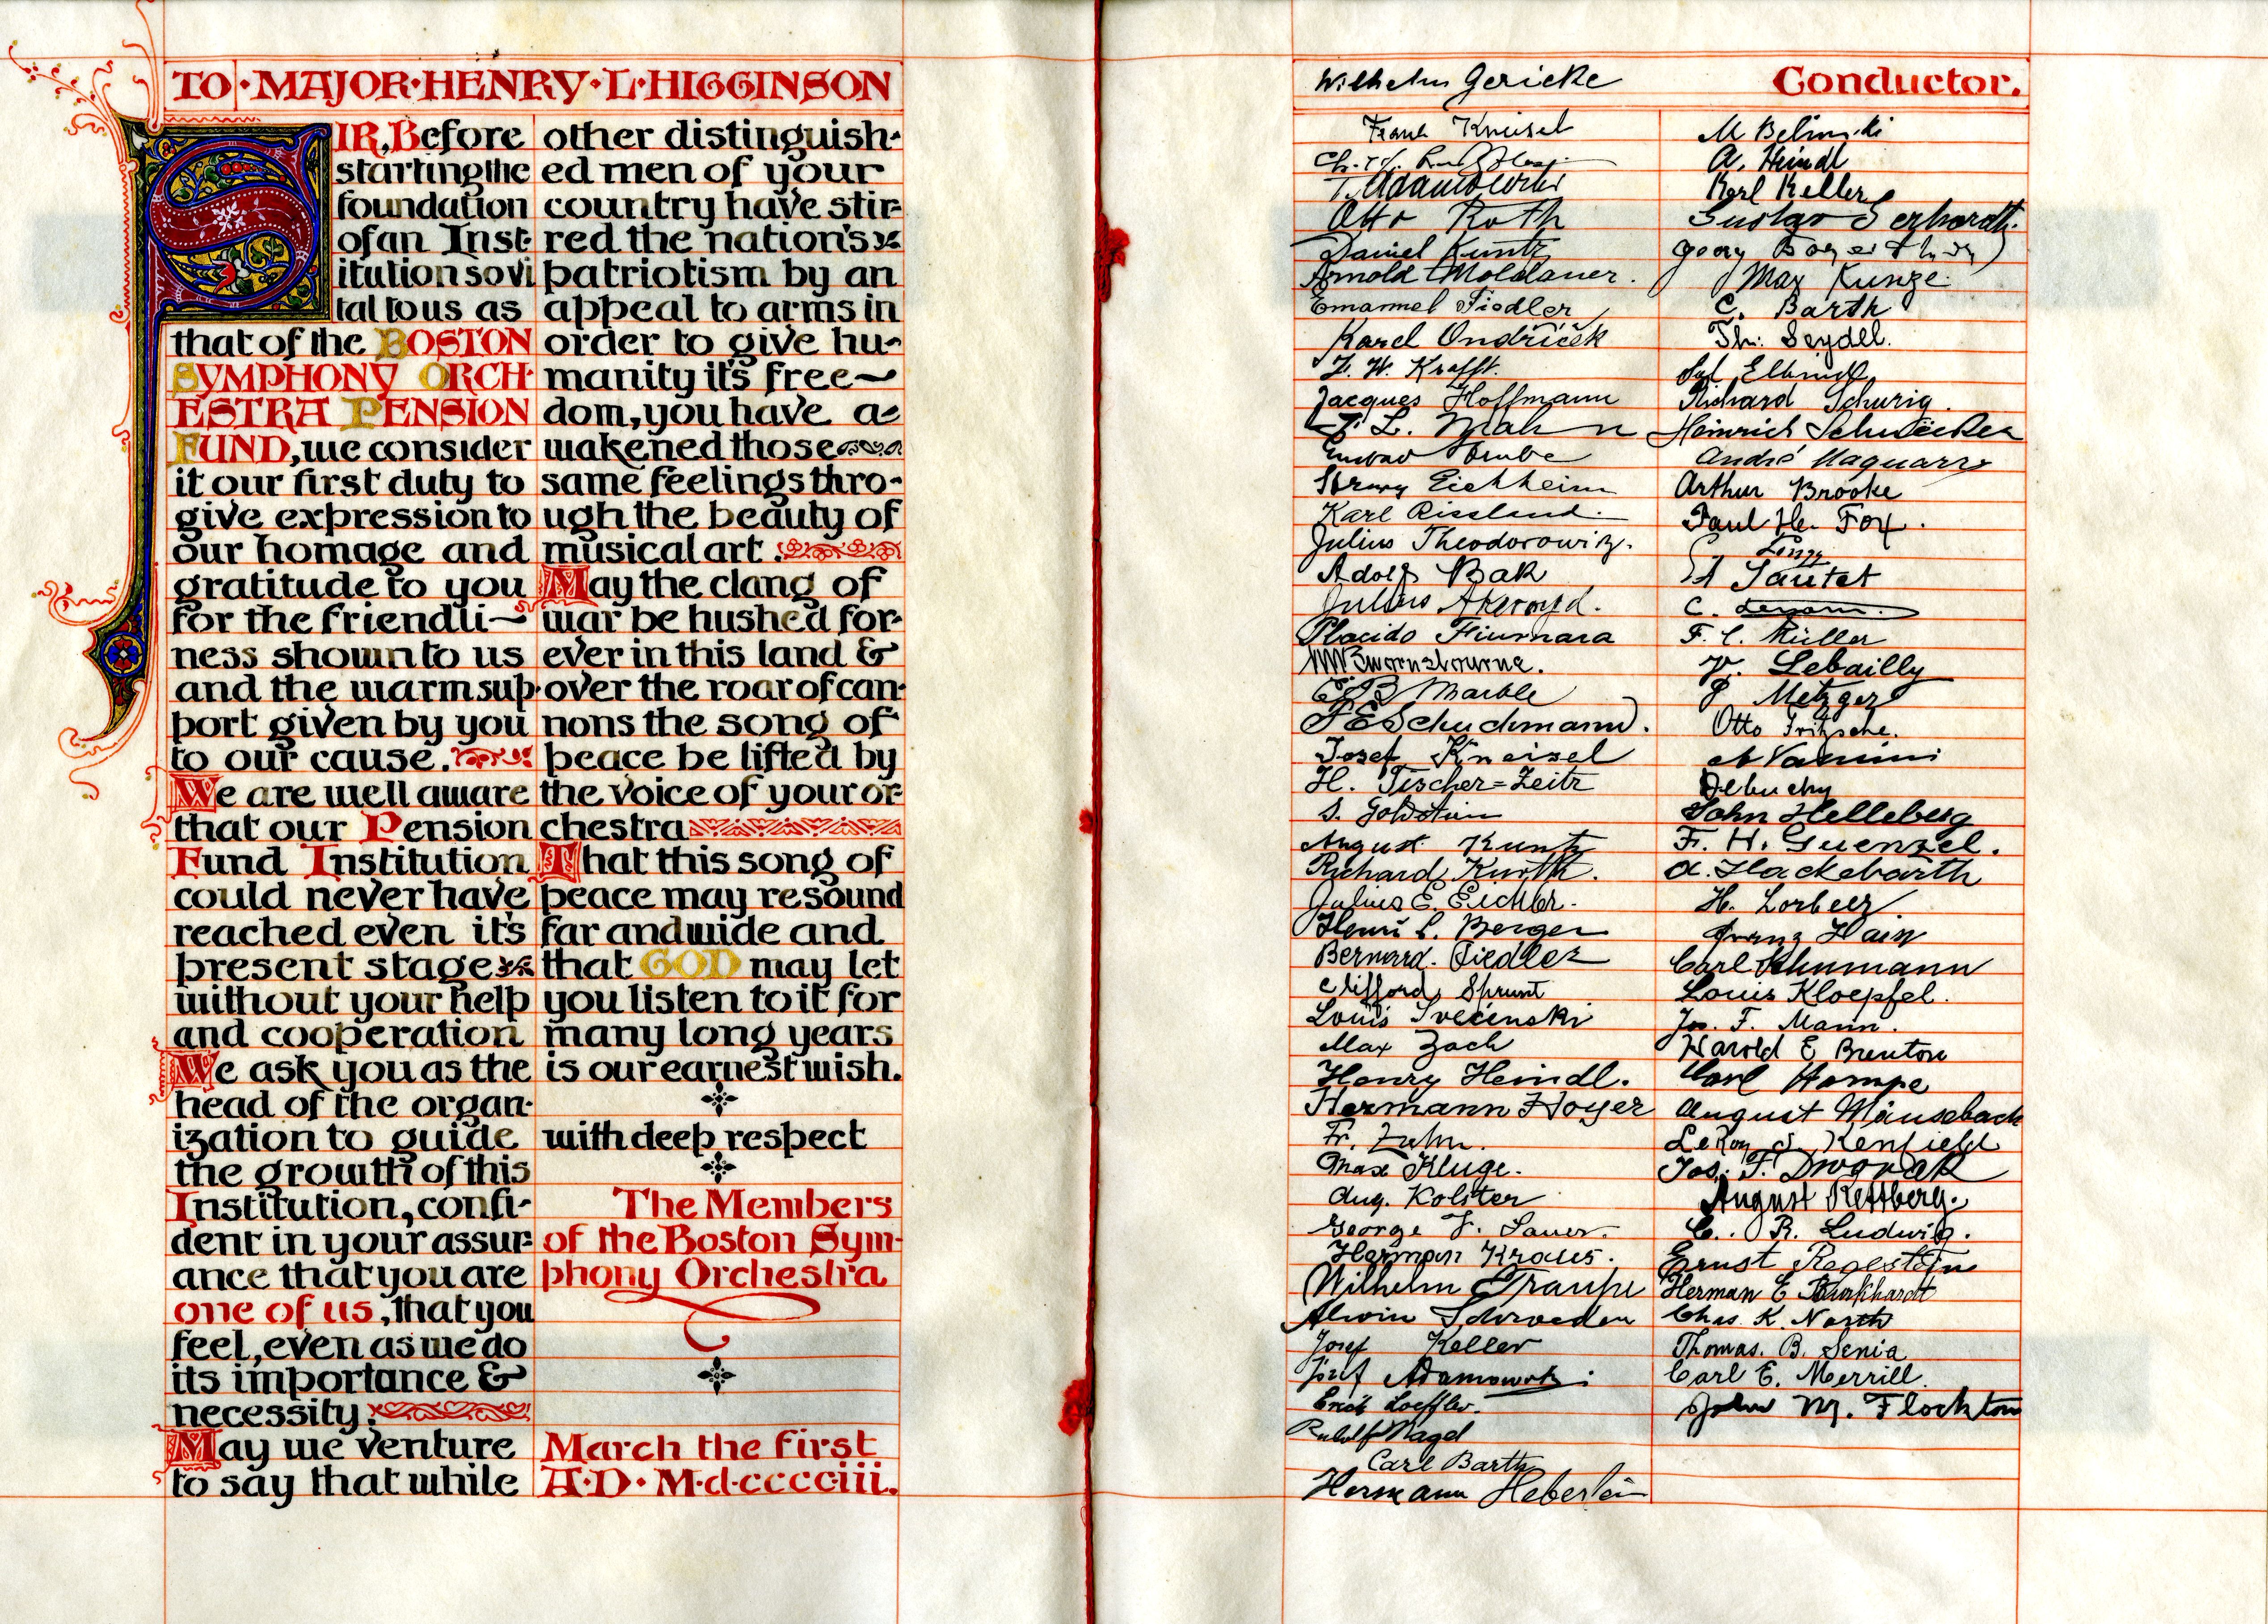 TO · MAJOR · HENRY · L · HIGGINSON
SIR, Before
starting the
foundation
of an Inst-
itution so vi
tal to us as
that of the BOSTON
SYMPHONY ORCH-
ESTRA PENSION
FUND, we consider
it our first duty to
give expression to
our homage and
gratitude to you
for the friendli~
ness shown to us
and the warm sup-
port given by you
to our cause.
We are well aware
that our Pension
Fund Institution
could never have
reached even it's
present stage
without your help
and cooperation
We ask you as the
head of the organ-
ization to guide
the growth of this
Institution, confi-
dent in your assur-
ance that you are
one of us, that you
feel, even as we do
its importance &
necessity.
May we venture
to say that while
other distinguish-
ed men of your
country have stir-
red the nation's
patriotism by an
appeal to arms in
order to give hu-
manity it's free~
dom, you have a-
wakened those
same feelings thro-
ugh the beauty of
musical art.
May the clang of
war be hushed for-
ever in this land &
over the roar of can-
nons the song of
peace be lifted by
the voice of your or-
chestra
That this song of
peace may resound
far and wide and
that GOD may let
you listen to it for
many long years
is our earnest wish.
with deep respect
The Members
of the Boston Sym-
phony Orchestra
March the first
A·D·M·d·cccciii.
Wilhelm Gericke Conductor.
Franz Kneisel
T. Adamowski
Otto Roth
Daniel Kuntz
Arnold Moldauer.
Emanuel Fiedler
Karel Ondříček
F. W. Krafft.
Jacques Hoffmann
F. L. Mahn
Gustav Strube
Henry Eichheim
Karl Rissland.
Julius Theodorowicz.
Adolf Bak
Julius Akeroyd.
Placido Fiumara
W. Swornsbourne.
E B Marble
F E Schuchmann.
Josef Kneisel
H. Tischer=Zeitz
S. Goldstein
August Kuntz
Richard Kurth.
Julius E. Eichler.
Henri C. Berger
Bernard. Fiedler
Clifford Sprunt
Louis Svećenski
Max Zach
Henry Heindl.
Hermann Hoyer
Fr. Zahn.
Max Kluge.
Aug. Kolster
George F. Sauer.
Herman Kraus.
Wilhelm Traupe
Alwin Schroeder
Josef Keller
Józef Adamowski
Erich Loeffler.
Rudolf Nagel
Carl Barth
Hermann Heberlein
M Belinski
A. Heindl
Karl Keller
Gustav Gerhardt.
Max Kunze.
C. Barth
Th: Seydel.
Richard Schurig.
Heinrich Schuëcker
André Maquarre
Arthur Brooke
Paul H. Fox.
Longy
A Sautet
C. Lenom.
F. C. Müller
V. Lebailly
P Metzger
Otto Fritzsche.
A Vannini
Debuchy
John Helleberg
F. H. Guenzel.
A. Hackebarth
H. Lorbeer
Franz Hain
Carl Schumann
Louis Kloepfel.
Jos. F. Mann.
Harold E Brenton
Carl Hampe
August Mäusebach
LeRoy S. Kenfield
August Rettberg.
C. R. Ludwig.
Ernst Regestein
Herman E Burkhardt
Chas. K. North
Thomas. B. Senia
Carl E. Merrill.
John M. Flockton